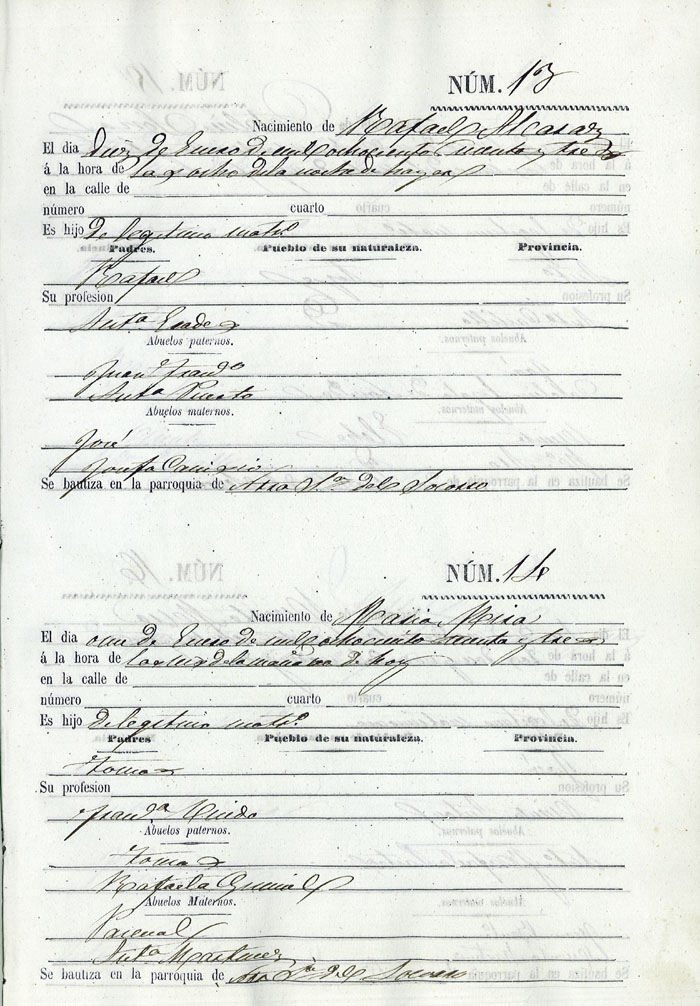 NÚM. 13
Nacimiento de Rafael Alcaraz
El dia diez de Enero de mil ochocientos setenta y tres
á la hora de las ocho de la noche de
en la calle de
número cuarto
Es hijo de legitimo matr.º
Padres. Pueblo de su naturaleza. Provincia.
Rafael
Su profesion
Ant.ª
Abuelos paternos.
Juan Fran.co
Ant.ª Puerto
Abuelos maternos.
José
Josefa
Se bautiza en la parroquia de Ntra S.ra del Socorro
NÚM. 14
Nacimiento de Maria Mira
El dia once de Enero de mil ochocientos setenta y tres
á la hora de las de la mañana de hoy
en la calle de
número cuarto
Es hijo de legitimo matr.º
Padres Pueblo de su naturaleza. Provincia.
Tomas
Su profesion
Fran.ca
Abuelos paternos.
Tomas
Rafaela
Abuelos Maternos.
Pascual
Ant.ª Martinez
Se bautiza en la parroquia de Ntra S.ra del Socorro